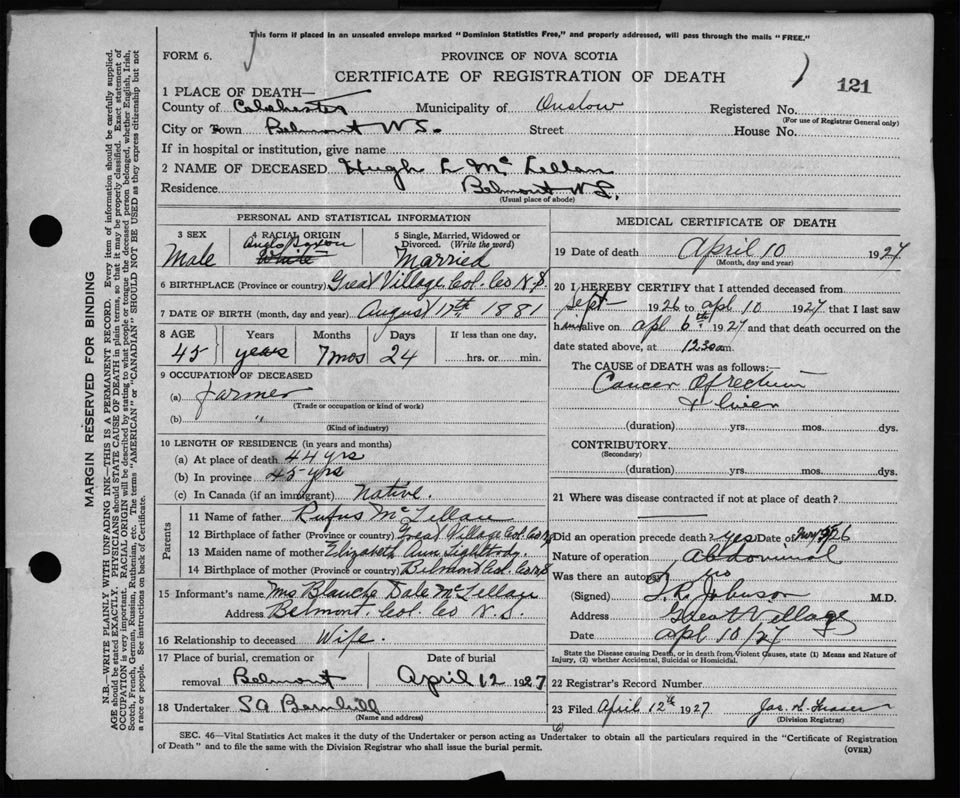 This form if placed in an unsealed envelope marked "Dominion Statistics Free," and properly addressed, will pass through the mails "FREE."
FORM 6.
PROVINCE OF NOVA SCOTIA
CERTIFICATE OF REGISTRATION OF DEATH
121
1 PLACE OF DEATH—
County of Colchester Municipality of Onslow Registered No.
(For use of Registrar General only)
City or Town Belmont N.S. Street House No.
If in hospital or institution, give name
2 NAME OF DECEASED Hugh L McLellan
Residence Belmont N.S.
(Usual place of abode)
PERSONAL AND STATISTICAL INFORMATION
3 SEX
Male
4 RACIAL ORIGIN
Anglo Saxon
White
5 Single, Married, Widowed or Divorced. (Write the word)
Married
6 BIRTHPLACE (Province or country) Great Village Col. Co N.S
7 DATE OF BIRTH (month, day and year) August 17th, 1881
8 AGE Years Months Days If less than one day,
45 years 7 mos 24 hrs. or min.
9 OCCUPATION OF DECEASED
(a) Farmer
(Trade or occupation or kind of work)
(b) "
(Kind of industry)
10 LENGTH OF RESIDENCE (in years and months)
(a) At place of death 44 yrs
(b) In province 45 yrs
(c) In Canada (if an immigrant) Native.
Parents
11 Name of father Rufus McLellan
12 Birthplace of father (Province or country) Great Village Col. Co N.S
13 Maiden name of mother Elizabeth Ann Lightbody
14 Birthplace of mother (Province or country) Belmont Col. Co N.S
15 Informant's name Mrs Blanche Dale McLellan
Address Belmont Col. Co N.S.
16 Relationship to deceased Wife.
17 Place of burial, cremation or removal Belmont
Date of burial
April 12 1927
18 Undertaker S A Barnhill
(Name and address)
MEDICAL CERTIFICATE OF DEATH
19 Date of death April 10 1927
(Month, day and year)
20 I HEREBY CERTIFY that I attended deceased from
Sept 1926 to apl 10 1927 that I last saw
h alive on apl 6th 1927 and that death occurred on
date stated above, at 12 30 am
The CAUSE of DEATH was as follows:—
Cancer of rectum
& liver
(duration) yrs. mos. dys.
CONTRIBUTORY.
(Secondary)
(duration) yrs. mos. dys.
21 Where was disease contracted if not at place of death?
Did an operation precede death? yes Date of
Nature of operation Abdominal
Was there an autopsy no
(Signed) Johnson M.D.
Address Great Village
Date apl 10/27
State the Disease causing Death, or in death from Violent Causes, state (1) Means and Nature of Injury, (2) whether Accidental, Suicidal or Homicidal.
22 Registrar's Record Number
23 Filed April 12th 1927 Jas. Fraser
(Division Registrar)
SEC. 46—Vital Statistics Act makes it the duty of the Undertaker or person acting as Undertaker to obtain all the particulars required in the "Certificate of Registration
of Death" and to file the same with the Division Registrar who shall issue the burial permit.
(6)
(OVER)
MARGIN RESERVED FOR BINDING
N.B.—WRITE PLAINLY WITH UNFADING INK—THIS IS A PERMANENT RECORD. Every item of information should be carefully supplied.
AGE should be stated EXACTLY. PHYSICIANS should STATE CAUSE OF DEATH in plain terms, so that it may be properly classified. Exact statement of
OCCUPATION is very important. RACIAL ORIGIN will be described by stating to what people or tongue the deceased person belonged, whether English, Irish,
Scotch, French, German, Russian, Ruthenian, etc. The terms "AMERICAN" or "CANADIAN" SHOULD NOT BE USED as they express citizenship but not
a race or people. See instructions on back of Certificate.